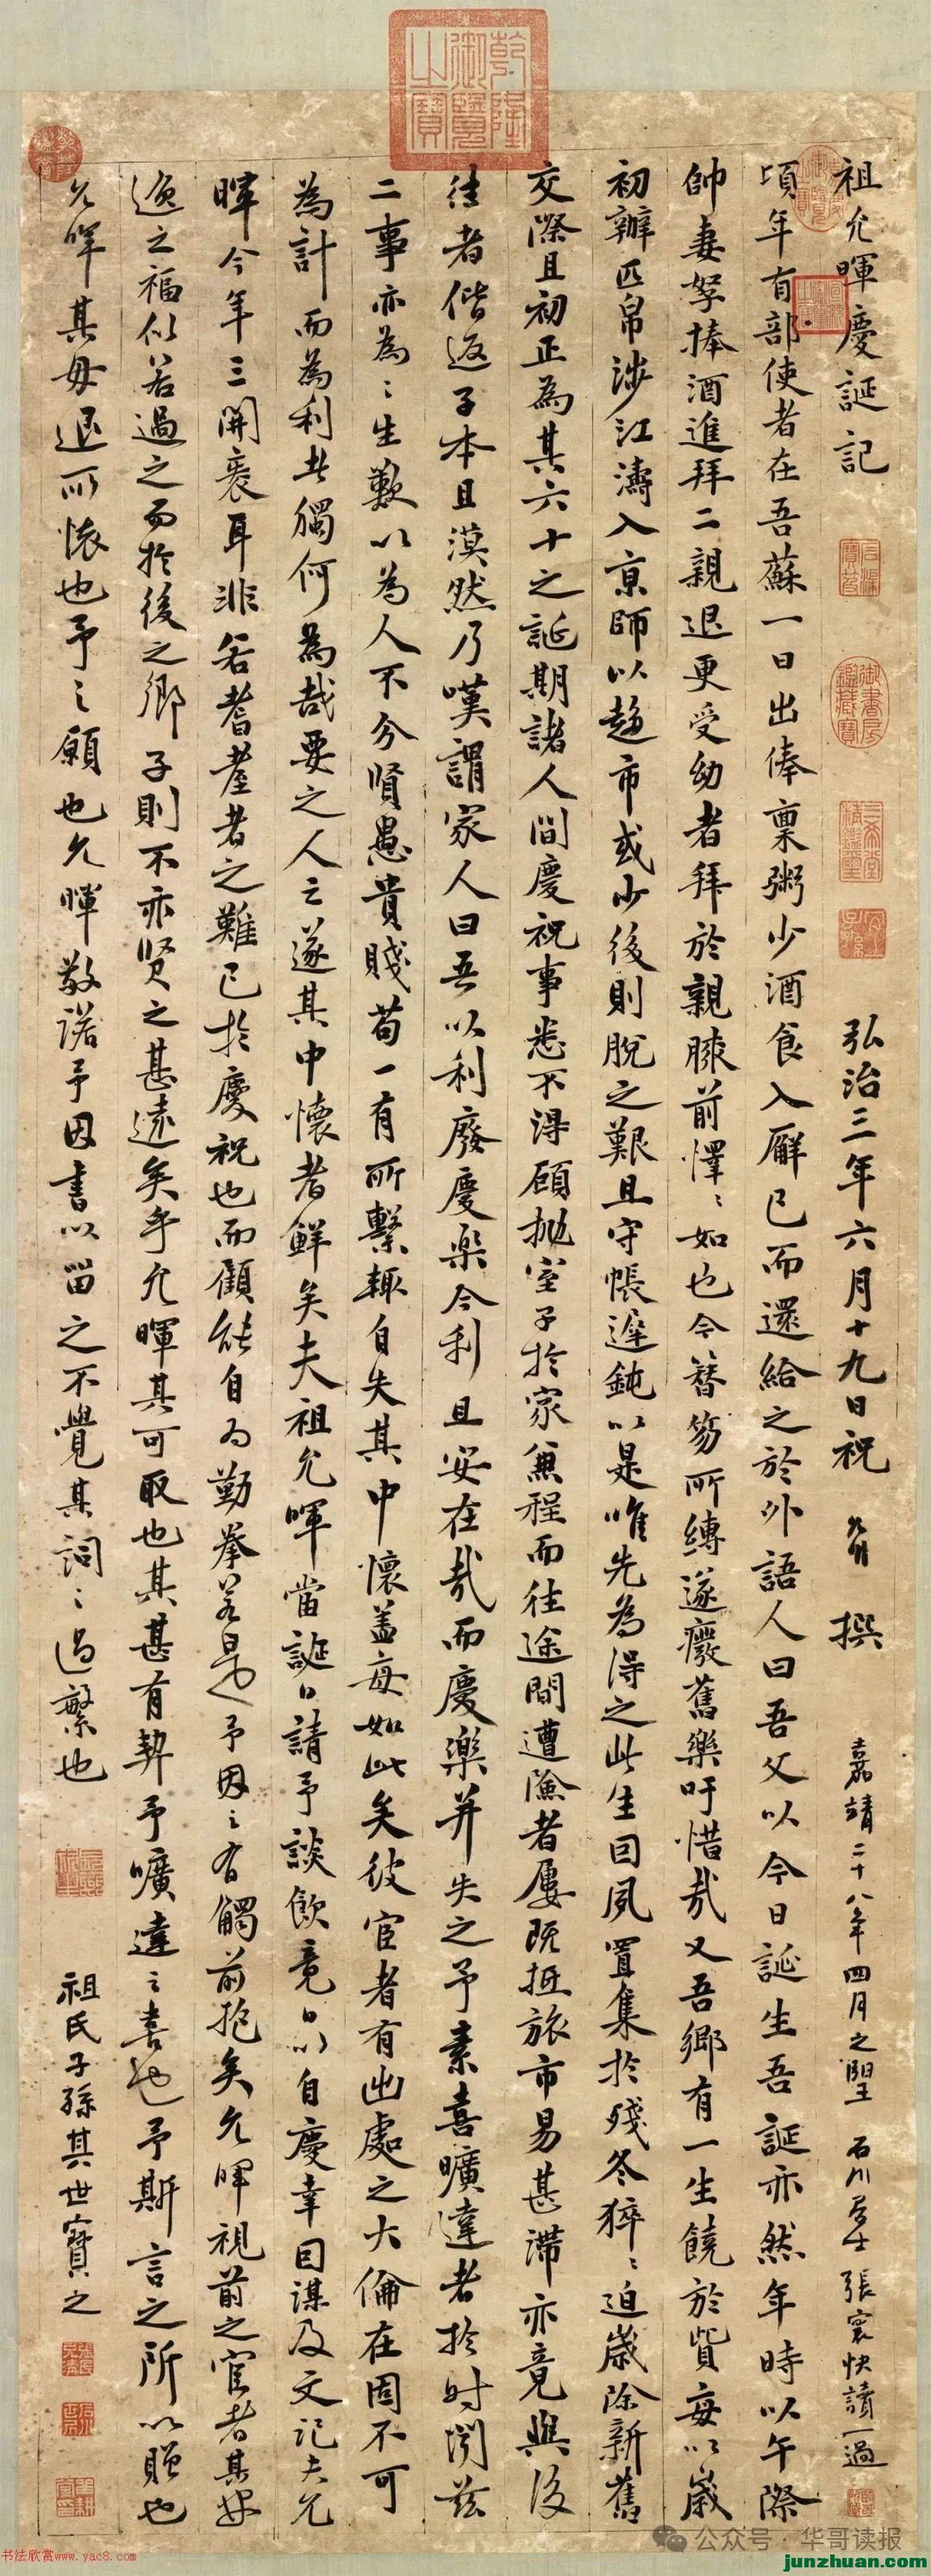 乾隆御覽之寶
祖允暉慶誕記
弘治三年六月十九日祝 允明 撰
嘉靖二十八年四月之望 石川居士張寰快讀一過
頃年有部使者在吾蘇一日出俸稟粥少酒食入廨已而還給之於外語人曰吾父以今日誕生吾誕亦然年時以午際
帥妻孥捧酒進拜二親退更受幼者拜於親膝前懌〻如也今簪笏所縛遂癈舊樂吁惜哉又吾鄉有一生饒於貲每以歲
初辦匹帛涉江濤入京師以趨市或少後則脫之艱且守帳遲鈍以是唯先為得之此生回夙置集於殘冬猝〻迫歲除新舊
交際且初正為其六十之誕期諸人間慶祝事悉不得顧拋室子於家兼程而往途間遭險者屢既抵旅市易甚滯亦竟與後
往者偕返子本且漠然乃嘆謂家人曰吾以利廢慶樂今利且安在哉而慶樂并失之予素喜曠達者於時閔茲
二事亦為〻生歎以為人不分賢愚貴賤苟一有所繫輒自失其中懷盖每如此矣彼宦者有出處之大倫在固不可
為計而為利者獨何為哉要之人之遂其中懷者鮮矣夫祖允暉當誕日請予談飲竟日以自慶幸因謀及文記夫允
暉今年三開袠耳非若耆耋者之難已於慶祝也而顧能自為勤拳若是予因之有觸前抱矣允暉視前之宦者其安
逸之福似若過之而於後之鄉子則不亦賢之甚遠矣乎允暉其可取也其甚有契予曠達之喜也予斯言之所以贈也
允暉其毋退所懷也予之願也允暉敬諾予因書以留之不覺其詞〻過繁也
祖氏子孫其世寶之
御書房鑑藏寶
三希堂精鑑璽
宜子孫
公众号·华哥读报
书法欣赏www.yac8.com
junzhuan.com